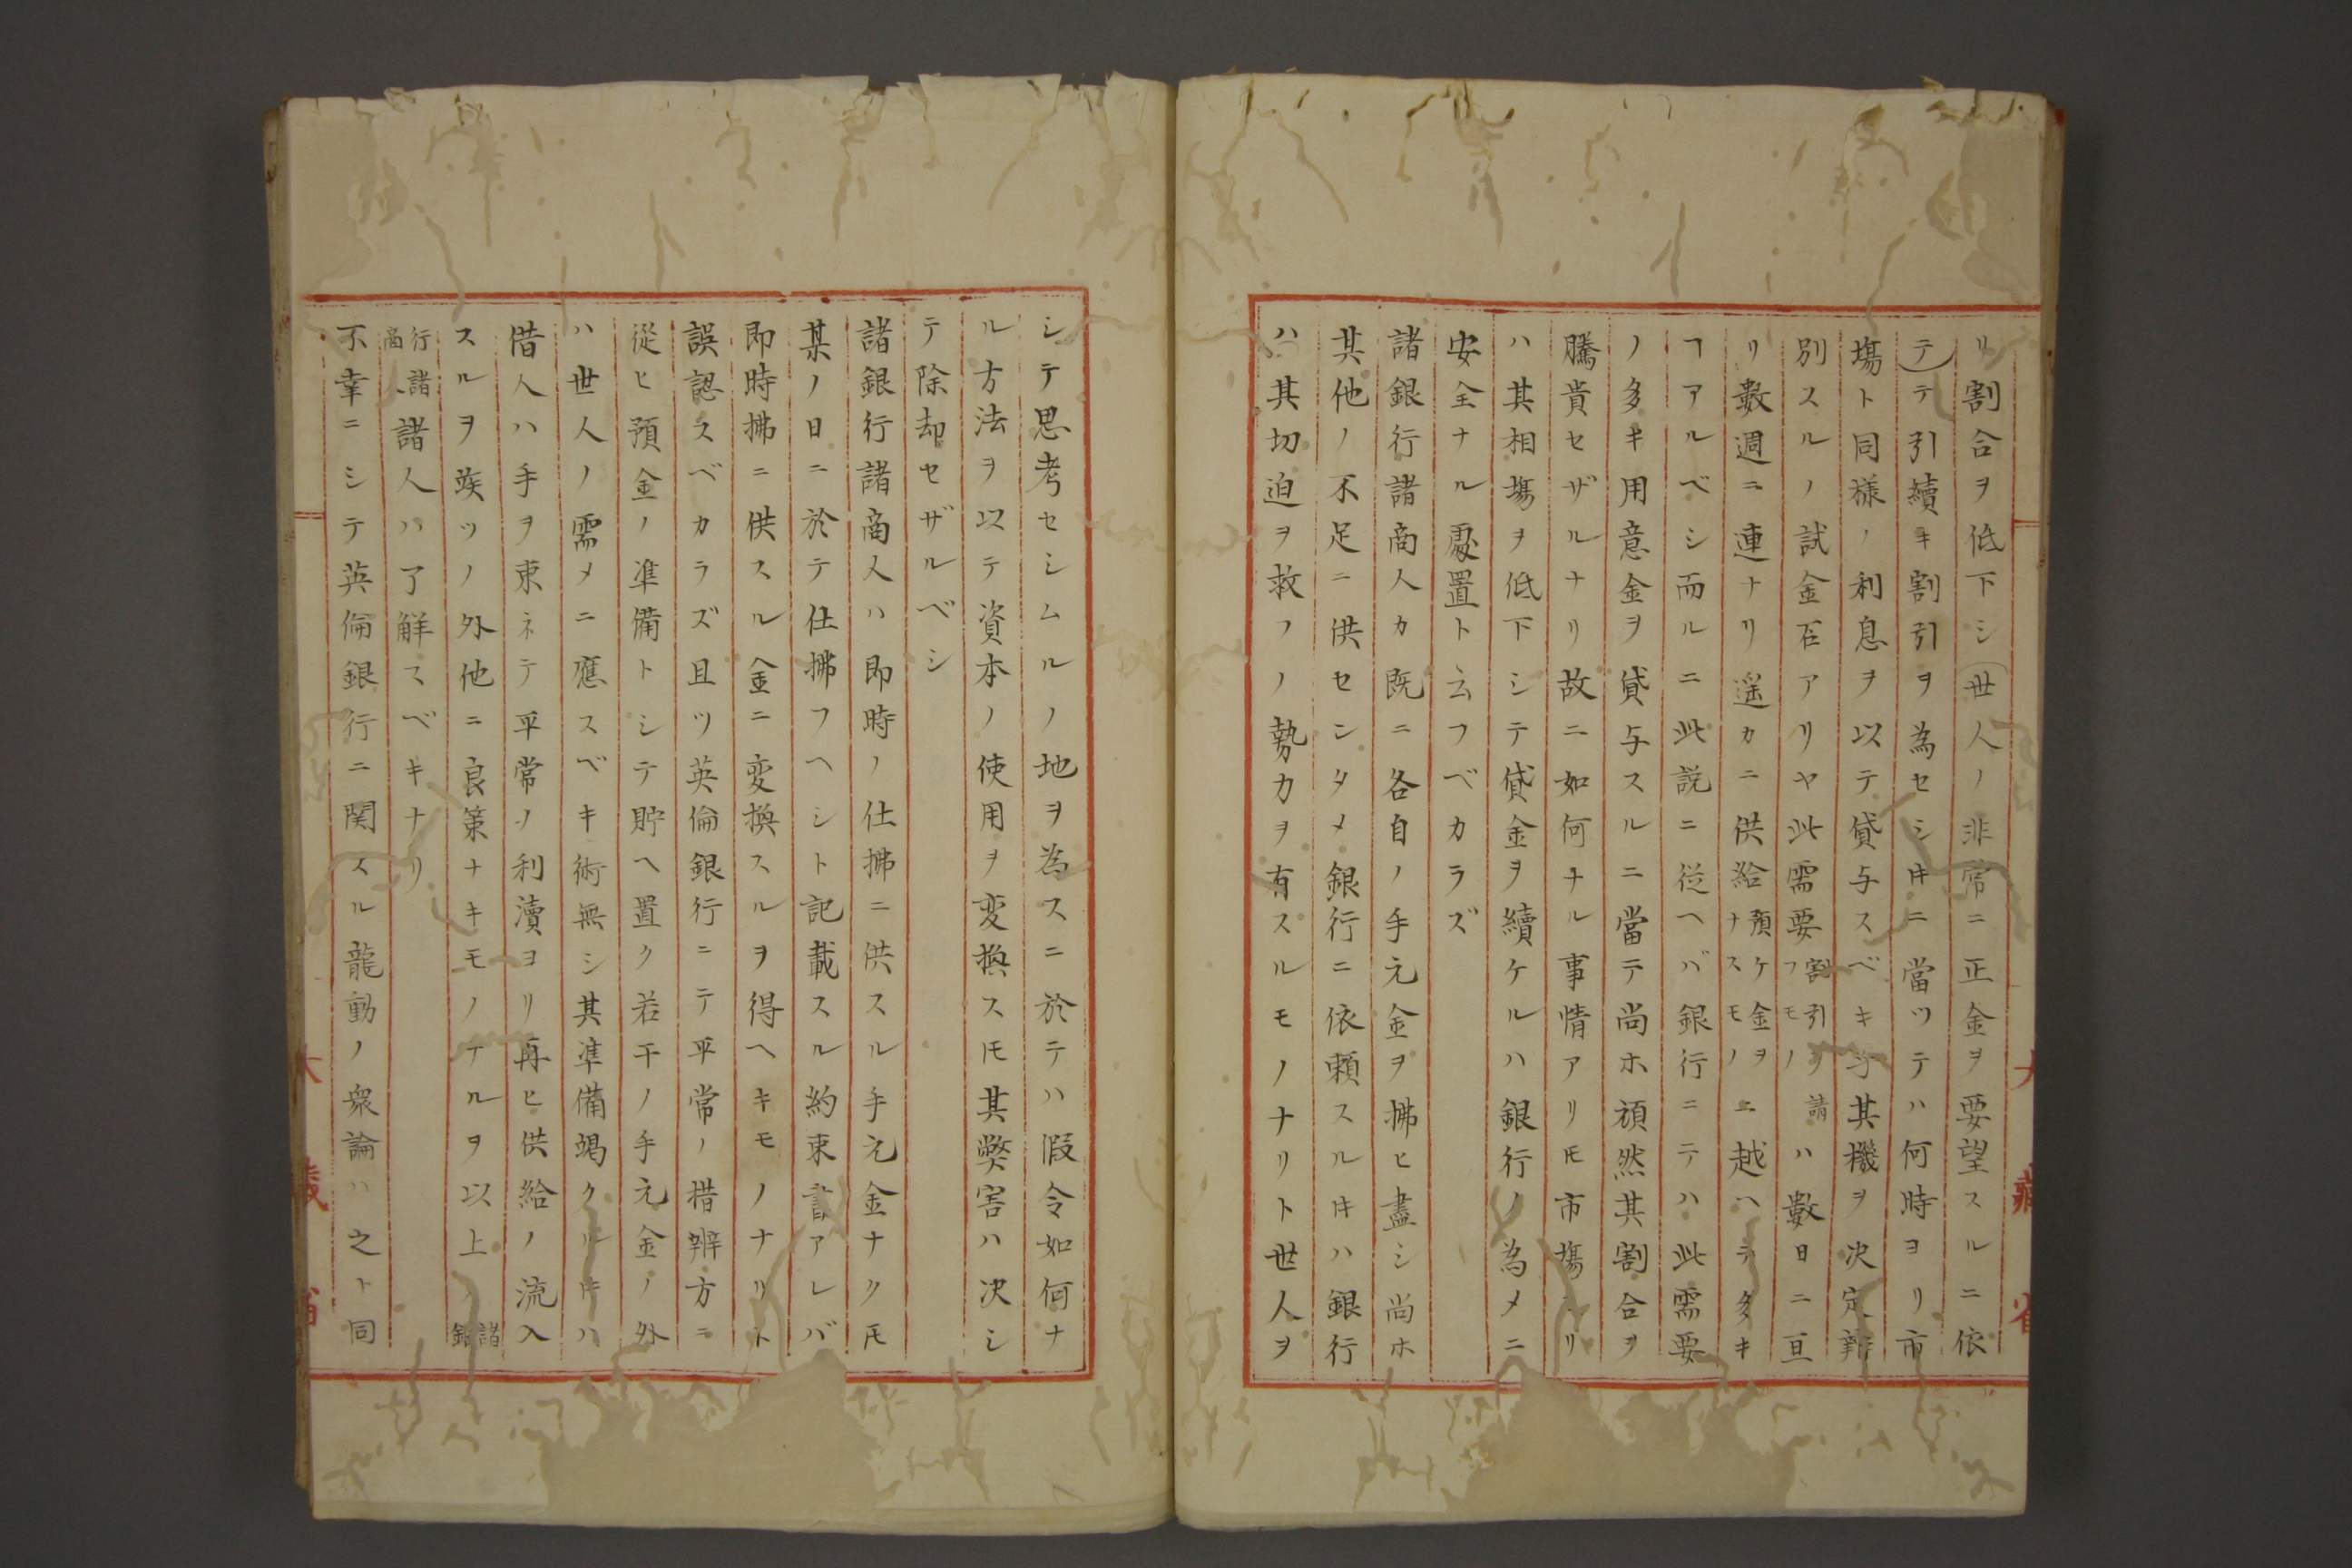 リ割合ヲ低下シ世人ノ非常ニ正金ヲ要望スルニ依
テテ引續キ割引ヲ為セシ𪜈ニ當ツテハ何時ヨリ市
塲ト同様ノ利息ヲ以テ貸与スベキ乎其機ヲ决定辨
別スルノ試金石アリヤ此需要割引ヲ請フモノハ數日ニ亘
リ數週ニ連ナリ遥カニ供給預ケ金ヲナスモノニ越ハラタキ
ヿアルベシ而ルニ此説ニ從ヘバ銀行ニテハ此需要
ノ多キ用意金ヲ貸与スルニ當テ尚ホ頑然其割合ヲ
騰貴セザルナリ故ニ如何ナル事情アリ𪜈市塲ヨリ
ハ其相塲ヲ低下シテ貸金ヲ續ケルハ銀行ノ為メニ
安全ナル處置ト云フベカラズ
諸銀行諸商人カ既ニ各自ノ手元金ヲ拂ヒ盡シ尚ホ
其他ノ不足ニ供センタメ銀行ニ依頼スル𪜈ハ銀行
ハ其切迫ヲ救フノ勢力ヲ有スルモノナリト世人ヲ
大藏省
シテ思考セシムルノ地ヲ為スニ於テハ假令如何ナ
ル方法ヲ以テ資本ノ使用ヲ変換ス𪜈其弊害ハ决シ
テ除却セザルベシ
諸銀行諸商人ハ即時ノ仕拂ニ供スル手元金ナク𪜈
某ノ日ニ於テ仕拂フヘシト記載スル約束書アレバ
即時拂ニ供スル金ニ変換スルヲ得ヘキモノナリト
誤認スベカラズ且ツ英倫銀行ニテ平常ノ措辨方ニ
從ヒ預金ノ準備トシテ貯ヘ置ク若干ノ手元金ノ外
ハ世人ノ需メニ應スベキ術無シ其準備竭クル𪜈ハ
借人ハ手ヲ束ネテ平常ノ利瀆ヨリ再ヒ供給ノ流入
スルヲ竢ツノ外他ニ良策ナキモノナルヲ以上諸銀
行諸商諸人ハ了解スベキナリ
不幸ニシテ英倫銀行ニ関スル龍動ノ衆論ハ之ト同
大藏省